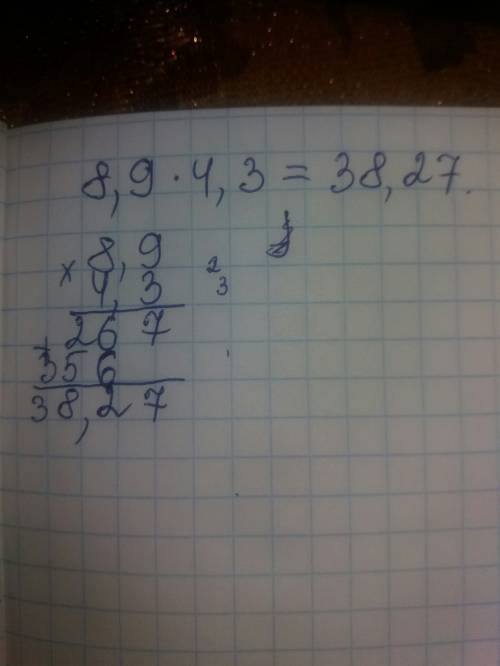 8,9 · 4,3 = 38,27.
× 8,9
4,3 2
3
267
+
356
38,27